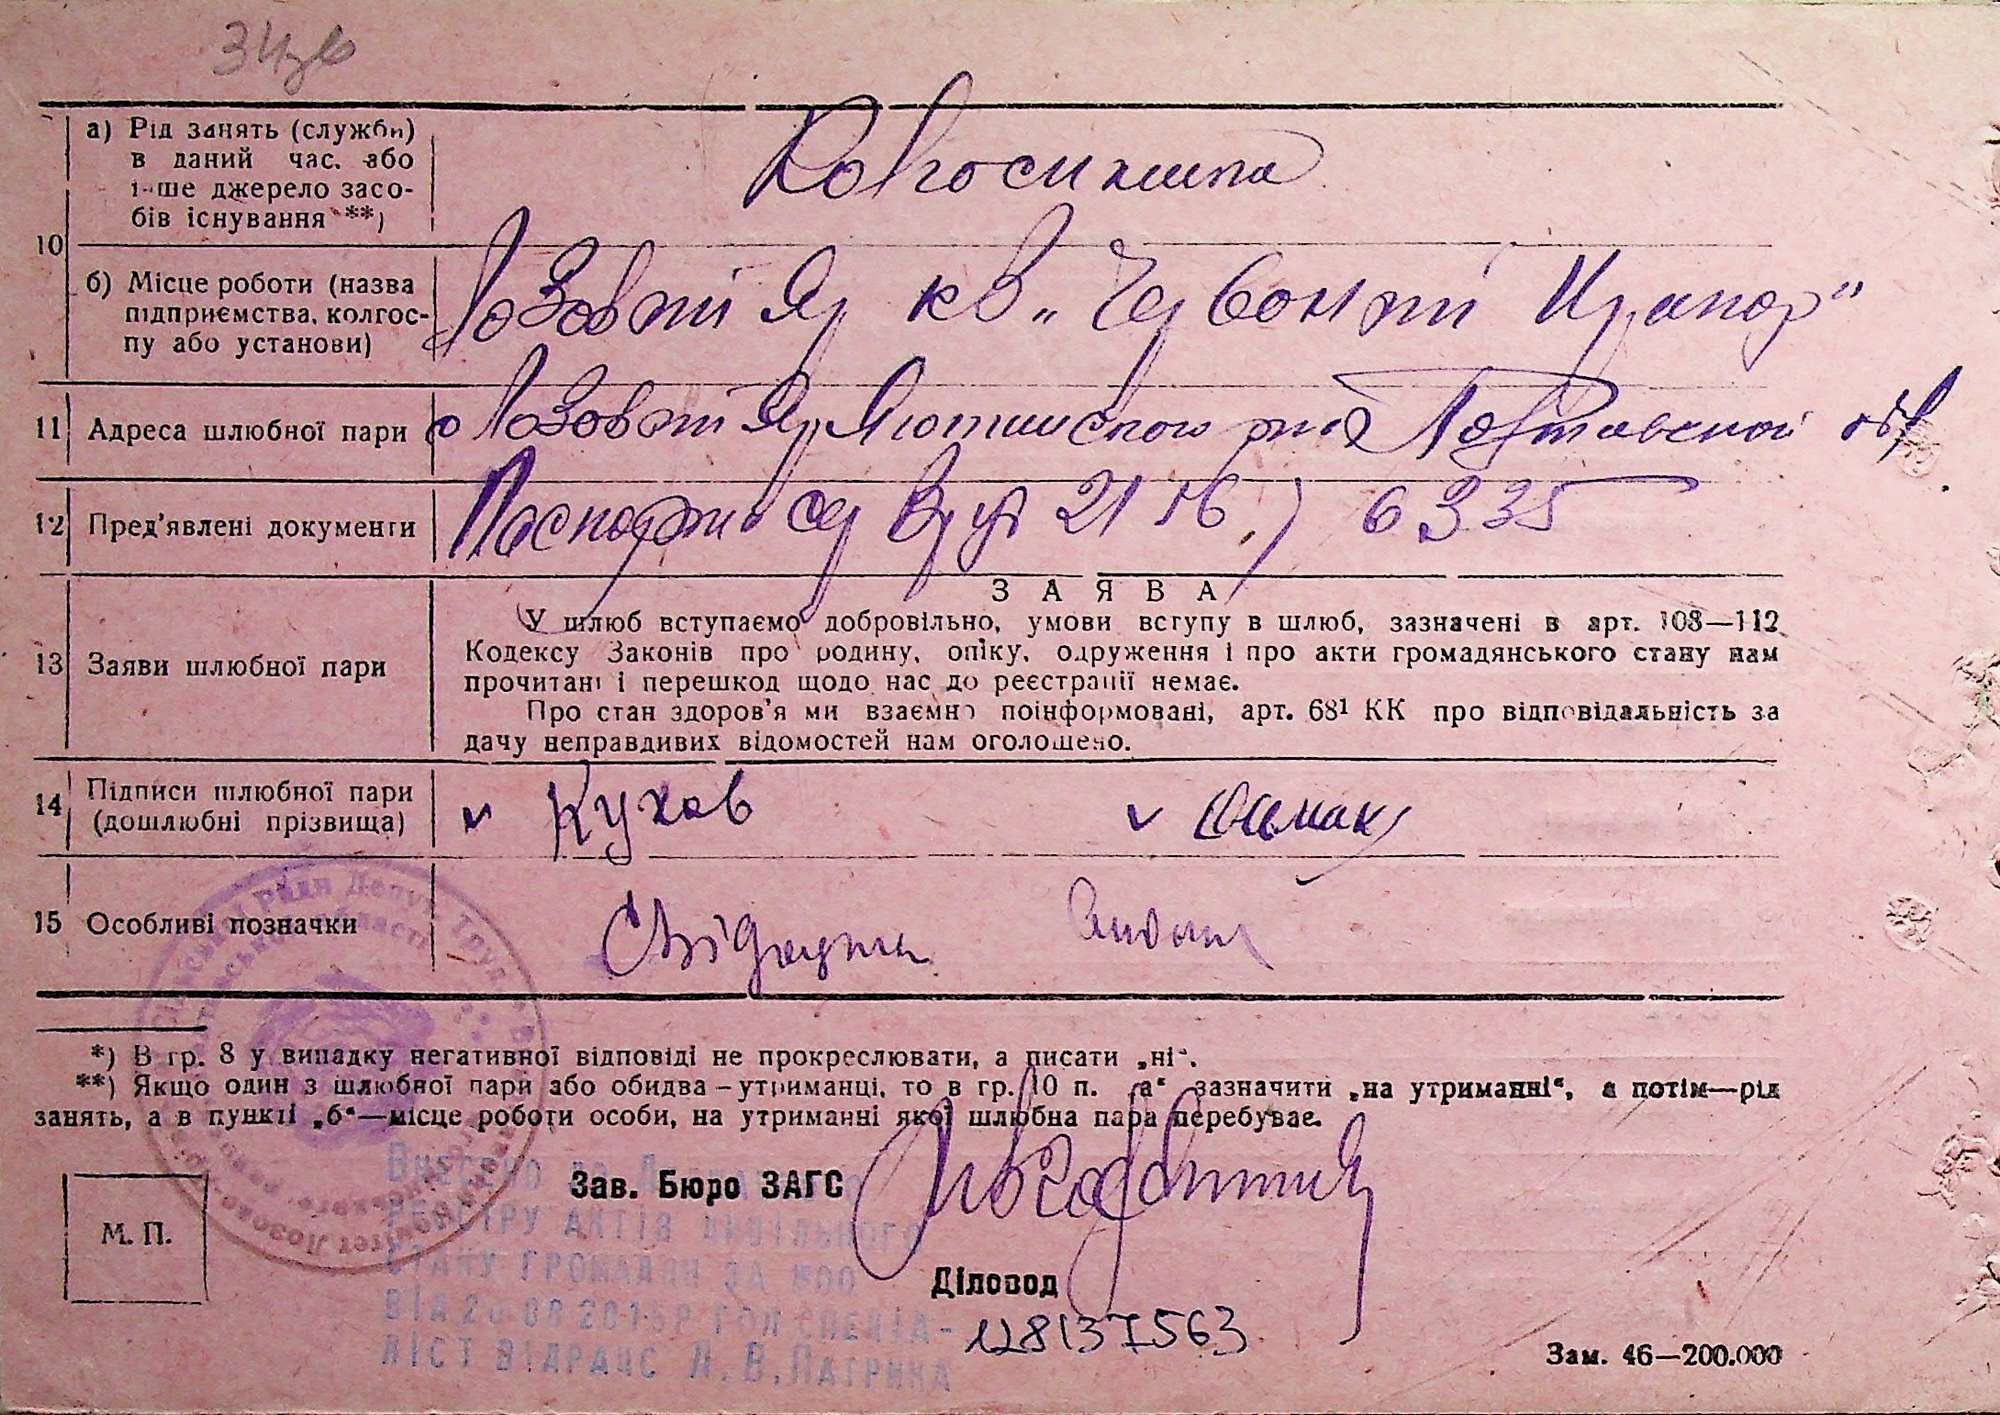 а) Рід занять (служби)
в даний час. або
інше джерело засо-
бів існування **)
Колгоспники
10
б) Місце роботи (назва
підприємства, колгос-
пу або установи)
Лозовий Яр кв „Червоний Прапор"
11 Адреса шлюбної пари
с Лозовий Яр Яготинского р-на Полтавской обл
12 Пред'явлені документи
Паспорти се 6335
13 Заяви шлюбної пари
ЗАЯВА
У шлюб вступаємо добровільно, умови вступу в шлюб, зазначені в арт. 108—112
Кодексу Законів про родину, опіку, одруження і про акти громадянського стану нам
прочитані і перешкод щодо нас до реєстрації немає.
Про стан здоров'я ми взаємно поінформовані, арт. 68¹ КК про відповідальність за
дачу неправдивих відомостей нам оголошено.
14 Підписи шлюбної пари
(дошлюбні прізвища)
Кухав
15 Особливі позначки
*) В гр. 8 у випадку негативної відповіді не прокреслювати, а писати „ні“.
**) Якщо один з шлюбної пари або обидва – утриманці, то в гр. 10 п. „а“ зазначити „на утриманні“, а потім—рід
занять, а в пункті „б“—місце роботи особи, на утриманні якої шлюбна пара перебуває.
Зав. Бюро ЗАГС
М. П.
Внесено до
реєстру актів цивільного
стану громадян за №00
від 20 08 2015р гол спеціа-
ліст відрацс Л. В. Патрика
Діловод
128137563
Зам. 46—200.000